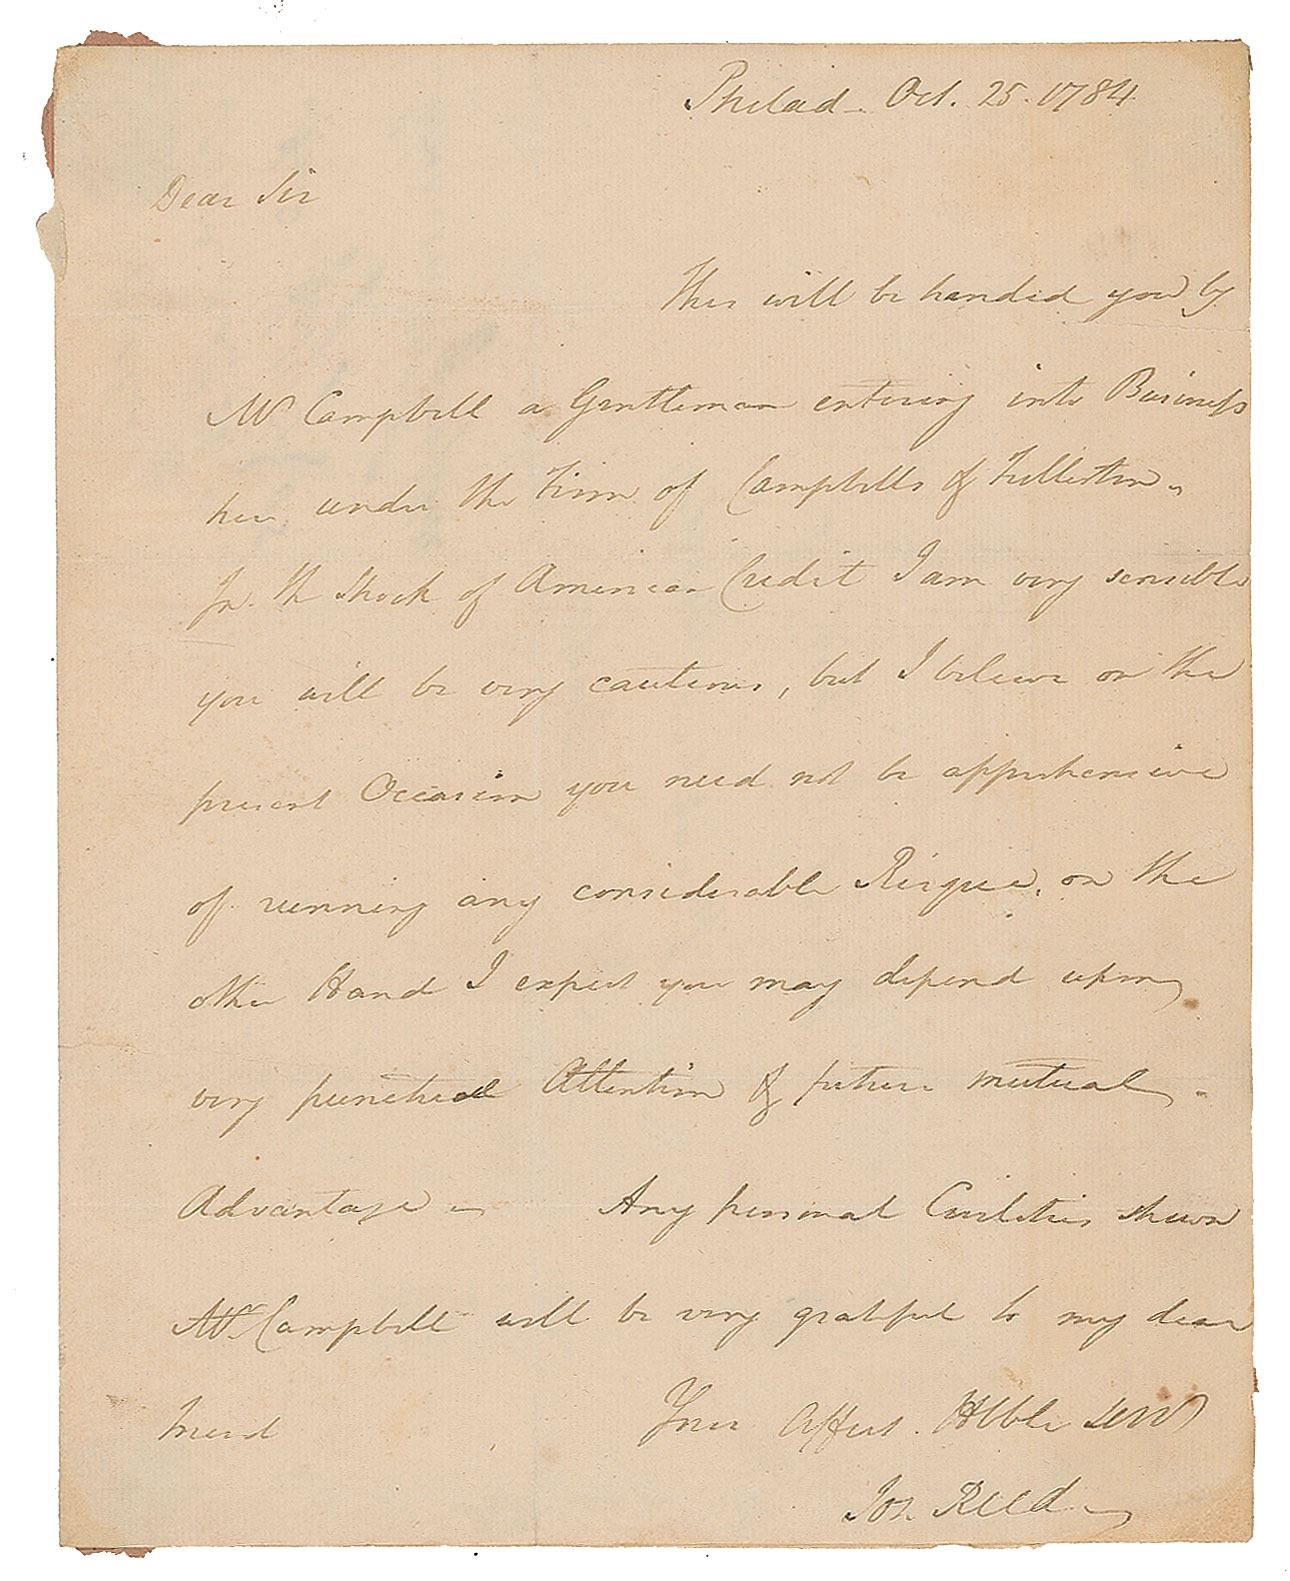 Philad. Oct. 25. 1784
Dear Sir
This will be handed you by
Mr Campbell a Gentleman entering into Business
here under the Firm of Campbells & Fullerton.
In the Shock of American Credit I am very sensible
you will be very cautious, but I believe on the
present Occasion you need not be apprehensive
of running any considerable Risque, on the
other Hand I expect you may depend upon
very punctual Attention & future mutual
Advantage — Any personal Civilities shewn
Mr Campbell will be very grateful to my dear
Friend Your Affect. Hbble Serv
Jos. Reed